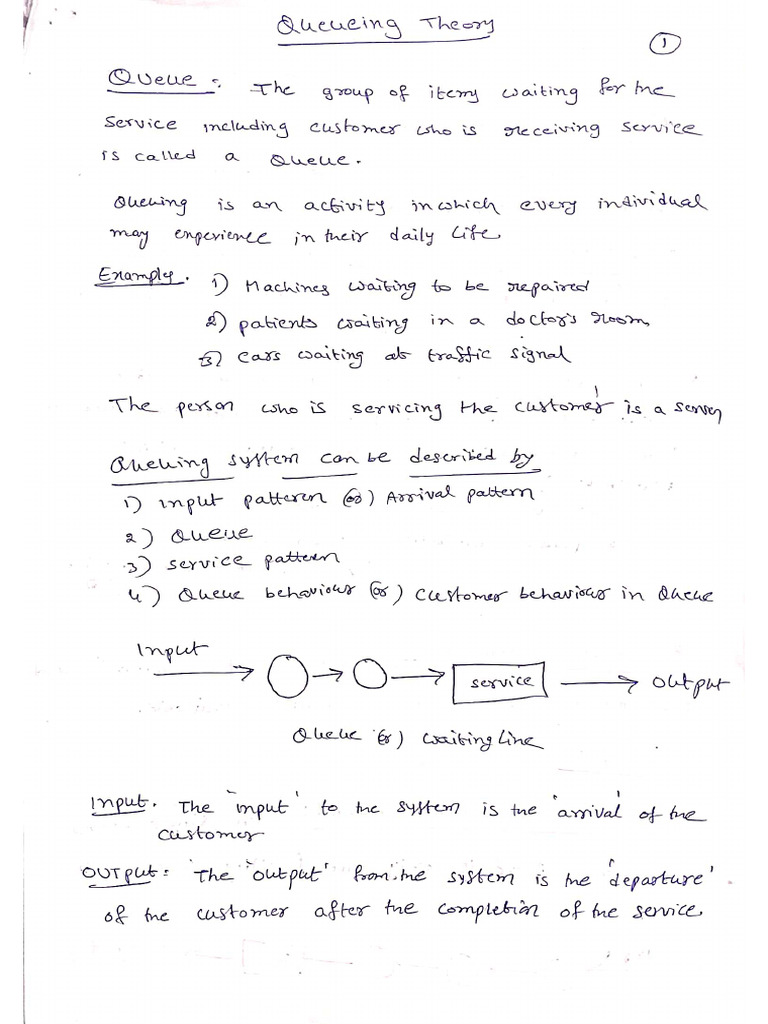 Queueing Theory
1
Queue: The group of items waiting for the
service including customer who is receiving service
is called a Queue.
Queuing is an activity in which every individual
may experience in their daily life
Examples. 1) Machines waiting to be repaired
2) patients waiting in a doctor's room
3) cars waiting at traffic signal
The person who is servicing the customer is a server
Queuing system can be described by
1) input patteren (or) Arrival pattern
2) Queue
3) service pattern
4) Queue behaviour (or) customer behaviour in Queue
Input
service
output
Queue (or) waiting line
Input. The 'input' to the system is the 'arrival' of the
customer
OUTput: The 'output' from the system is the 'departure'
of the customer after the completion of the service